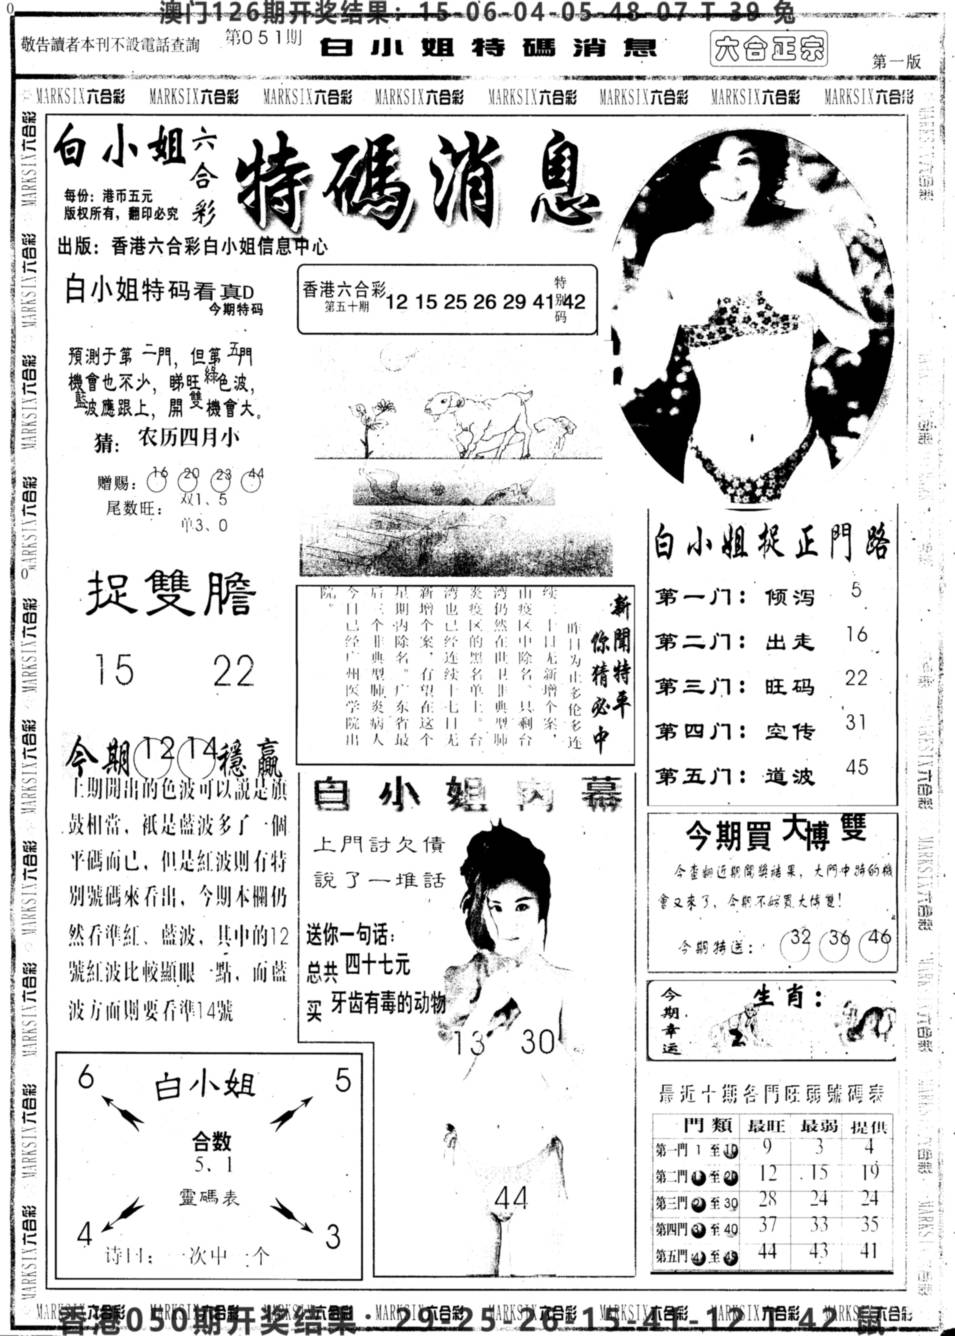 澳门126期开奖结果：15-06-04-05-48-07 T 39 兔
敬告讀者本刊不設電話查詢
第051期
白小姐特碼消息
六合正宗
第一版
MARKSIX六合彩 MARKSIX六合彩 MARKSIX六合彩 MARKSIX六合彩 MARKSIX六合彩 MARKSIX六合彩 MARKSIX六合彩 MARKSIX六合彩
白小姐六合彩
特碼消息
每份：港币五元
版权所有，翻印必究
出版：香港六合彩白小姐信息中心
白小姐特码看真D
今期特码
預測于第二門，但第五門
機會也不少，睇旺綠色波，
藍波應跟上，開雙機會大。
猜：农历四月小
赠赐：16 20 23 44
尾数旺：双1、5
单3、0
香港六合彩
第五十期
12 15 25 26 29 41 特别码 42
捉雙膽
15 22
新聞特平
你猜必中
昨日为止多伦多连
续二十日无新增个案，
由疫区中除名。只剩台
湾仍然在世卫非典型肺
炎疫区的黑名单上。台
湾也已经连续十七日无
新增个案，有望在这个
星期内除名。广东省最
后三个非典型肺炎病人
今日已经广州医学院出
院。
白小姐捉正門路
第一门：倾泻 5
第二门：出走 16
第三门：旺码 22
第四门：空传 31
第五门：道波 45
今期 12 14 穩贏
上期開出的色波可以說是旗
鼓相當，祇是藍波多了一個
平碼而已，但是紅波則有特
別號碼來看出，今期本欄仍
然看準紅、藍波，其中的12
號紅波比較顯眼一點，而藍
波方面則要看準14號
白小姐內幕
上門討欠債
說了一堆話
送你一句话：
总共 四十七元
买 牙齿有毒的动物
13 30
44
今期買大博雙
今查翻近期開獎結果，大門中特的機
會又來了，今期不妨買大博雙！
今期特送：32 36 46
今期幸运
生肖：
6 白小姐 5
合数
5. 1
靈碼表
4 3
诗曰：一次中一个
最近十期各門旺弱號碼表
門類 最旺 最弱 提供
第一門 1 至 10 9 3 4
第二門 11 至 20 12 15 19
第三門 21 至 30 28 24 24
第四門 31 至 40 37 33 35
第五門 41 至 49 44 43 41
MARKSIX六合彩 MARKSIX六合彩 MARKSIX六合彩 MARKSIX六合彩 MARKSIX六合彩 MARKSIX六合彩 MARKSIX六合彩 MARKSIX六合彩
香港050期开奖结果：29-25-26-15-41-12 T 42 鼠